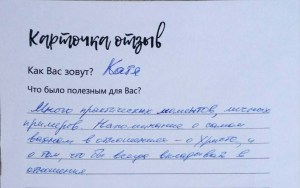 Карточка отзыв
Как Вас зовут? Катя
Что было полезным для Вас?
Много практических моментов, личных
примеров. Напоминание о самом
важном в отношениях - о Христе, и
о том, что Бог всегда
отношения.